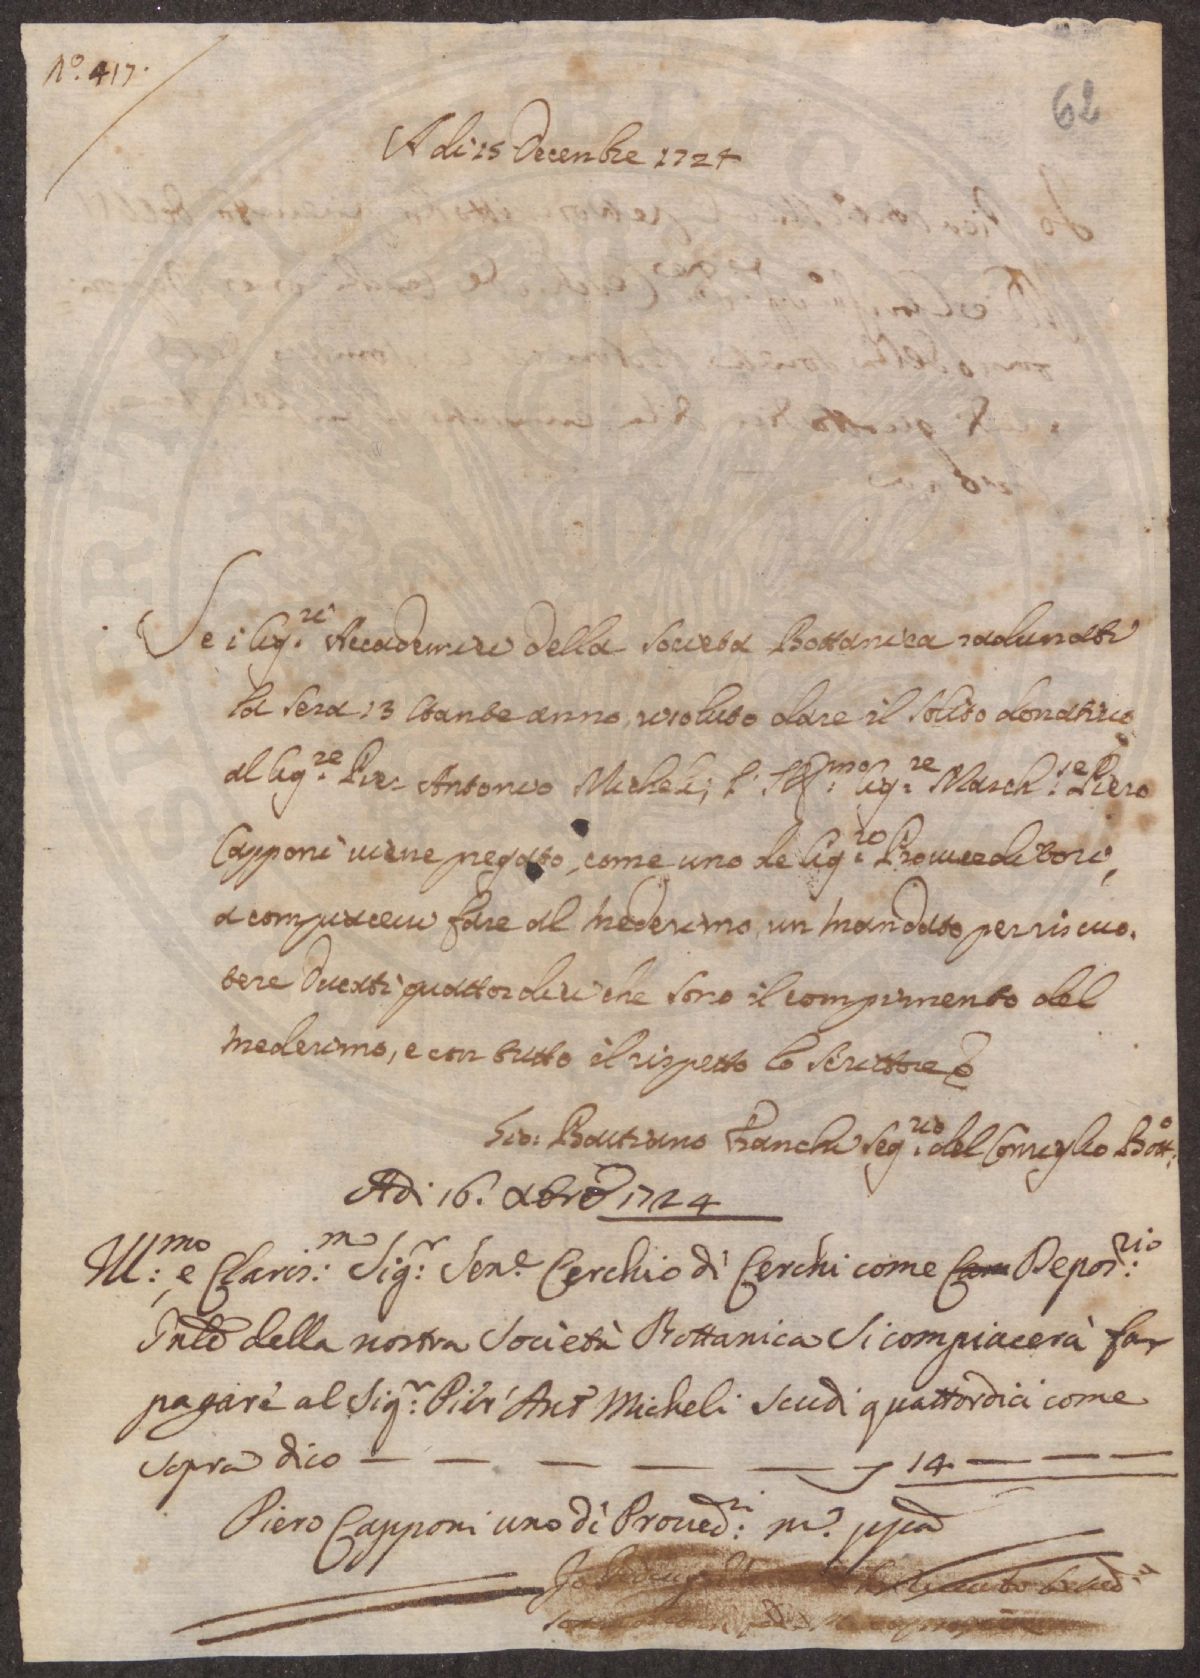 Nº. 417.
62
A di 15 Decembre 1724
Se i Sig.ri Accademici della Società Bottanica radunati
la sera 13 stante anno risoluto dare il solito donativo
al Sig.re Pier Antonio Micheli; l' Ill.mo Sig.re March.se Piero
Capponi viene pregato, come uno de Sig.ri Proveeditori,
a compiacersi fare al medesimo, un mandato per riscuo.
tere Ducati quattordici che sono il compimento del
medesimo, e con tutto il rispetto lo scrittore è
Gio: Battista Franchi Seg.rio del Consiglio Bott.º
Adi 16. Xbre 1724
Ill.mo e Claris.mo Sig.r Sen.e Cerchio di Cerchi come Depos.rio
della nostra Società Bottanica si compiacerà far
pagare al Sig.r Pier' Ant.º Micheli scudi quattordici come
sopra dico — — — — — 14 — — —
Piero Capponi uno di Proved.ri m.º ppa